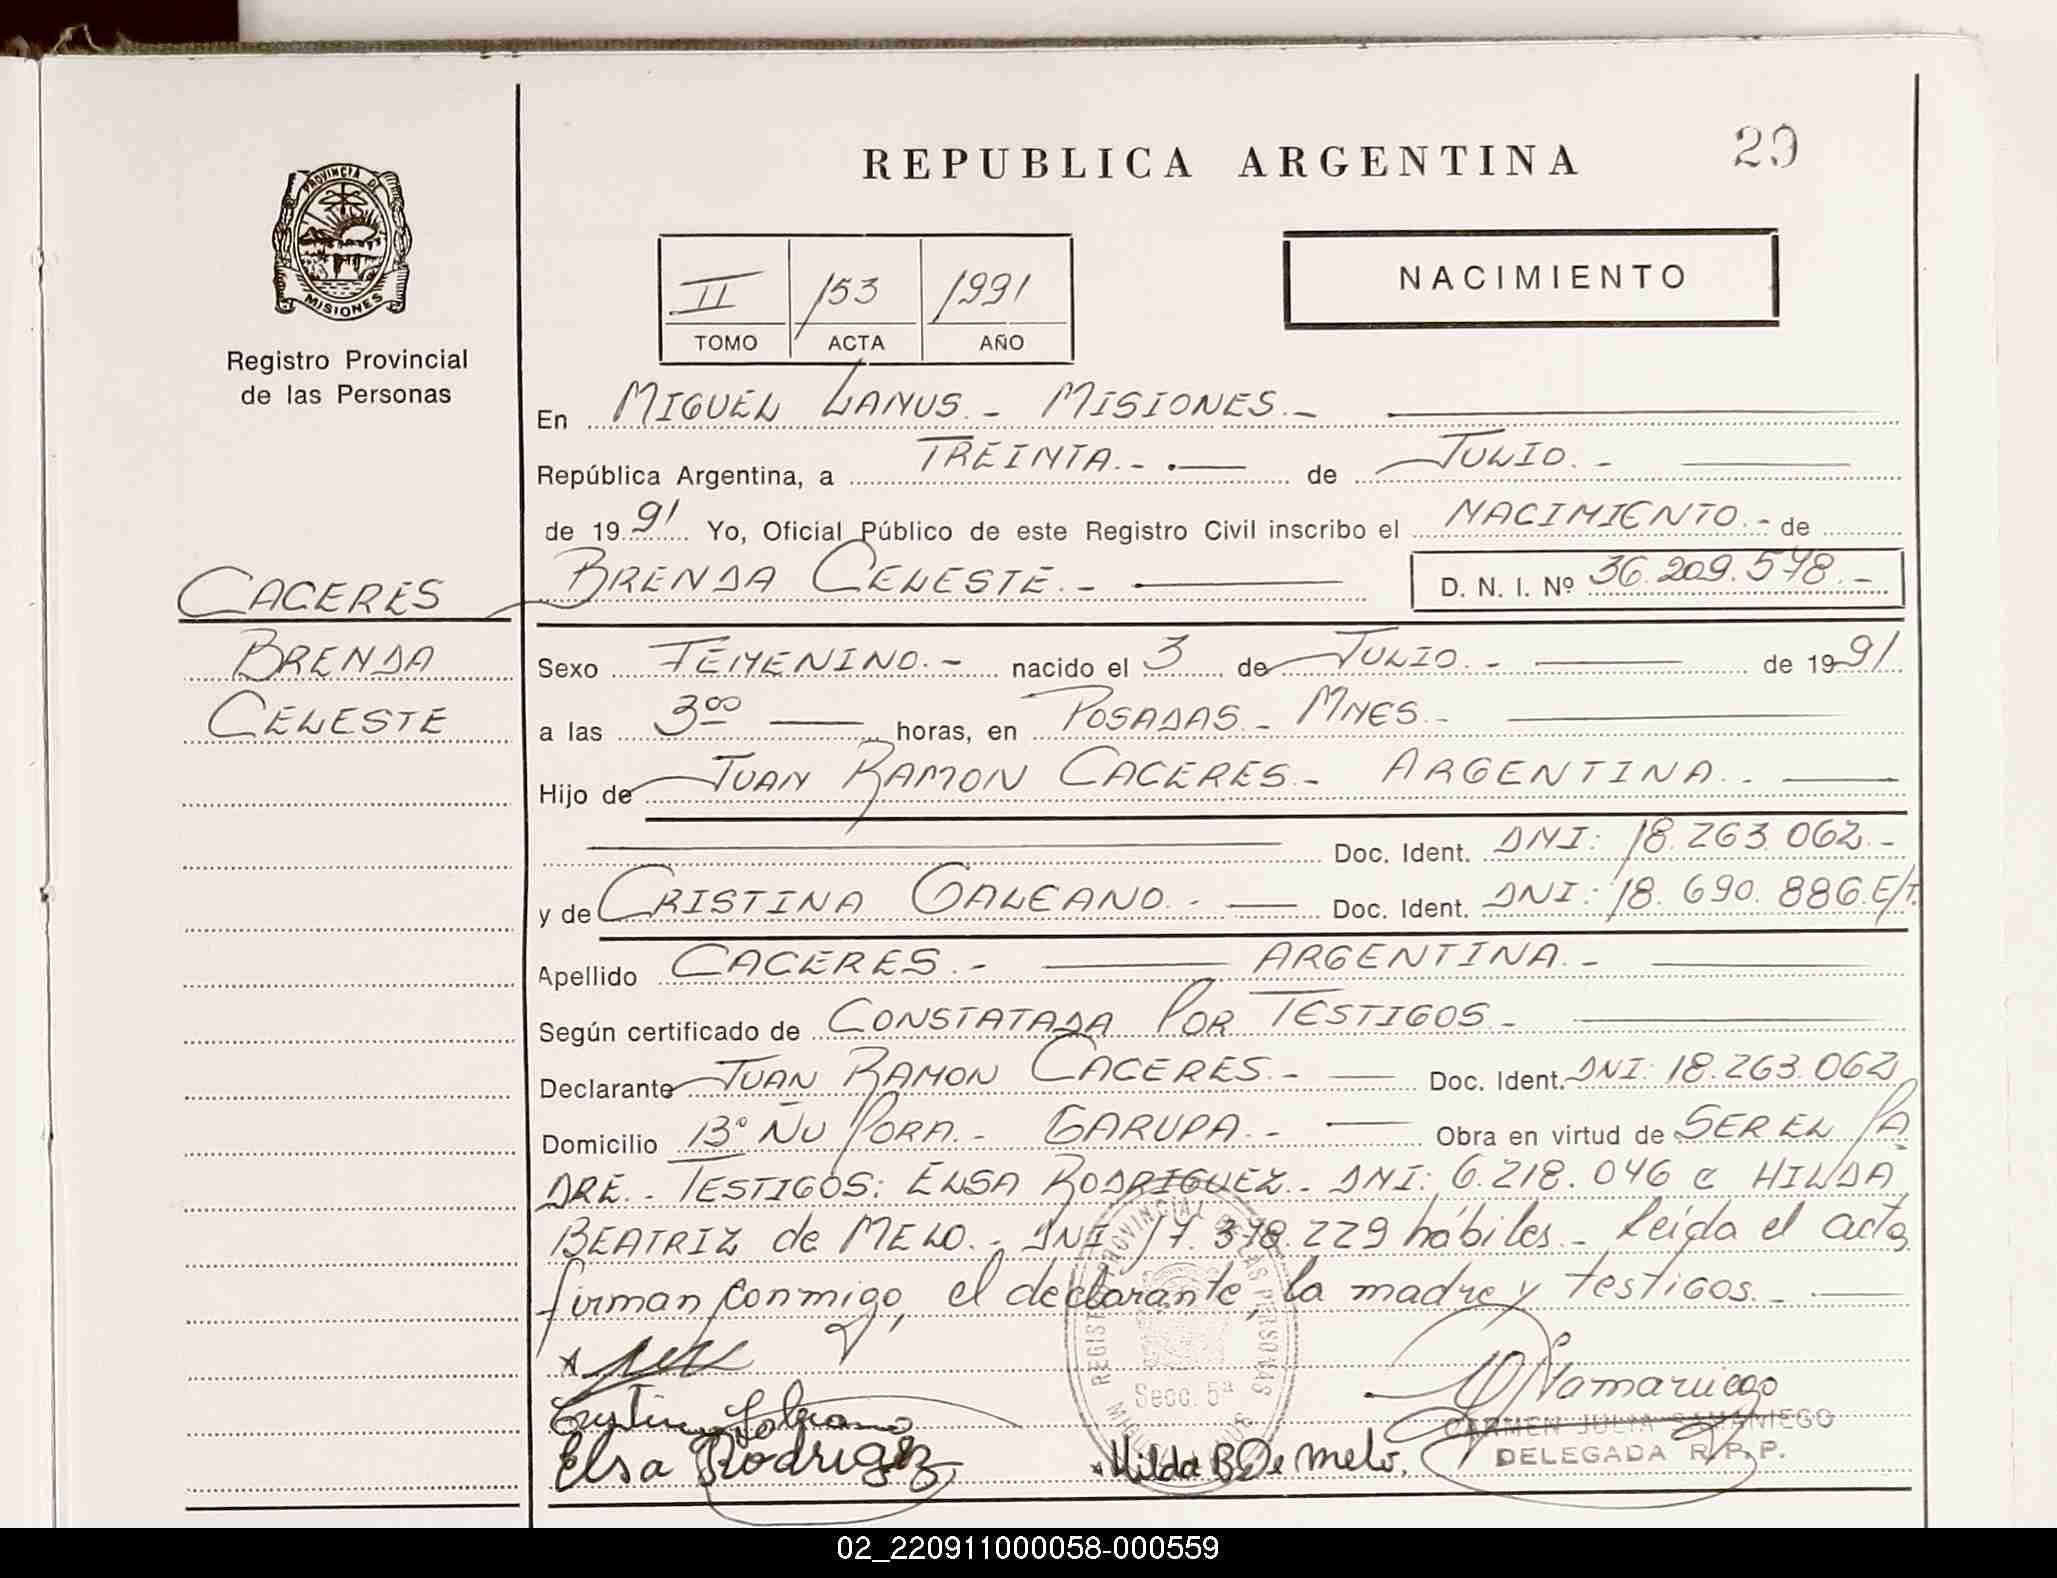 REPUBLICA ARGENTINA
29
PROVINCIA DE
MISIONES
Registro Provincial
de las Personas
II 153 1991
TOMO ACTA AÑO
NACIMIENTO
En MIGUEL LANUS.- MISIONES.-
República Argentina, a TREINTA.- de JULIO.-
de 1991 Yo, Oficial Público de este Registro Civil inscribo el NACIMIENTO.- de
BRENDA CELESTE.- D. N. I. Nº 36.209.578.-
CACERES
BRENDA
CELESTE
Sexo FEMENINO.- nacido el 3 de JULIO.- de 1991
a las 3 00 horas, en POSADAS.- MNES.-
Hijo de JUAN RAMON CACERES.- ARGENTINA.-
Doc. Ident. DNI: 18.263.062.-
y de CRISTINA GALEANO.- Doc. Ident. DNI: 18.690.886.E/T.
Apellido CACERES.- ARGENTINA.-
Según certificado de CONSTATADA POR TESTIGOS.-
Declarante JUAN RAMON CACERES.- Doc. Ident. DNI: 18.263.062
Domicilio Bº ÑU PORA.- GARUPA.- Obra en virtud de SER EL PA
DRE.- TESTIGOS: ELSA RODRIGUEZ.- DNI: 6.218.046 e HILDA
BEATRIZ de MELO.- DNI 17.378.229 hábiles.- Leída el acta
firman conmigo, el declarante, la madre y testigos.-
REGISTRO PROVINCIAL DE LAS PERSONAS
Secc. 5ª
Cristina Galeano
Samaniego
CARMEN JULIA SAMANIEGO
DELEGADA R. P. P.
Elsa Rodriguez
Hilda B. De Melo.
02_220911000058-000559